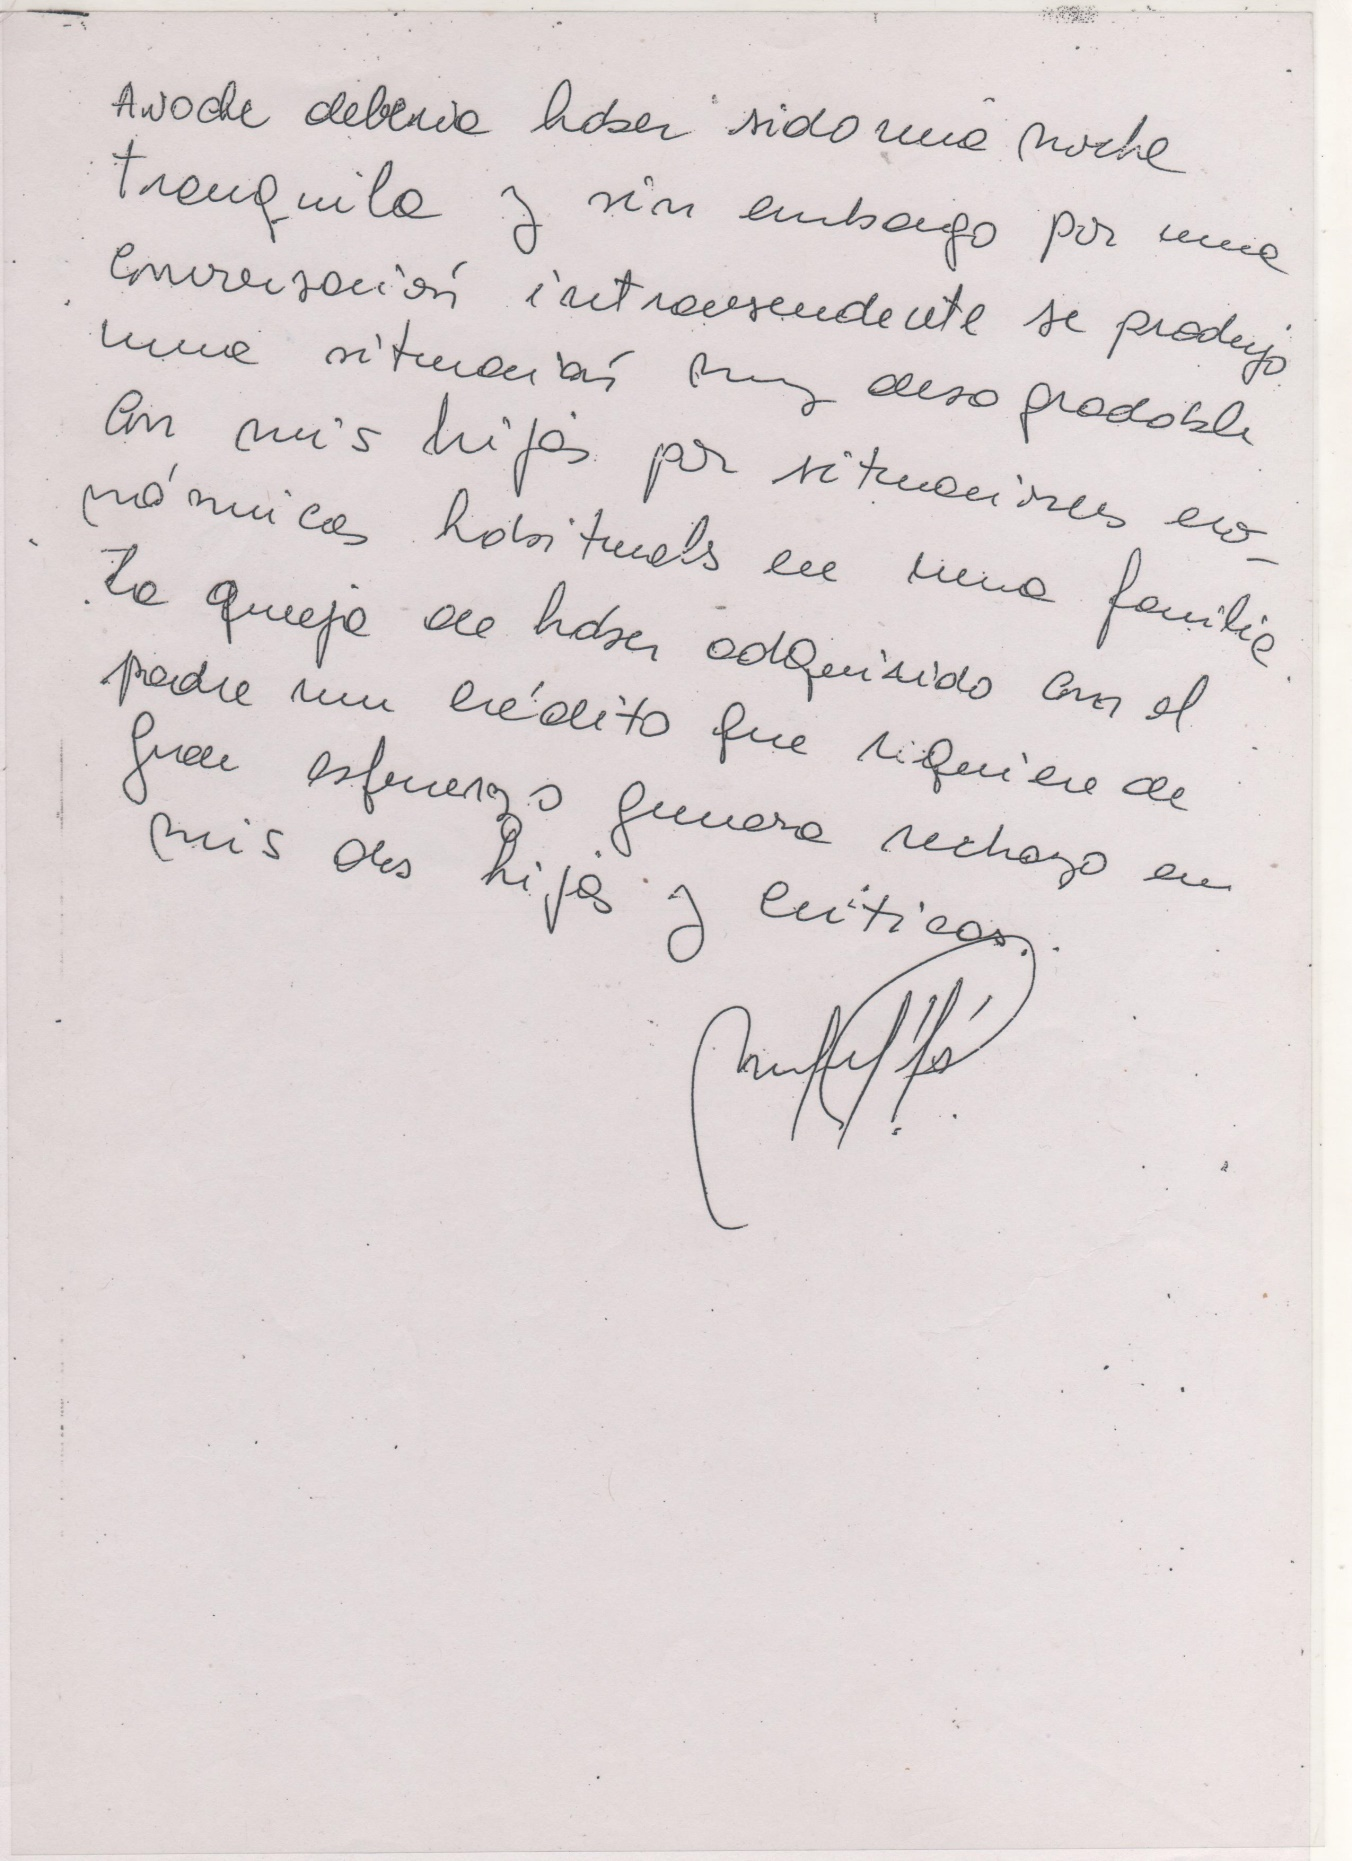 Anoche deberia haber sido una noche
tranquila y sin embargo por una
conversación intrascendente se produjo
una situación muy desagradable
con mis hijas por situaciones eco-
nómicas habituales en una familia.
La queja de haber adquirido con el
padre un crédito que requiere de
gran esfuerzo genera rechazo en
mis dos hijas y criticas.